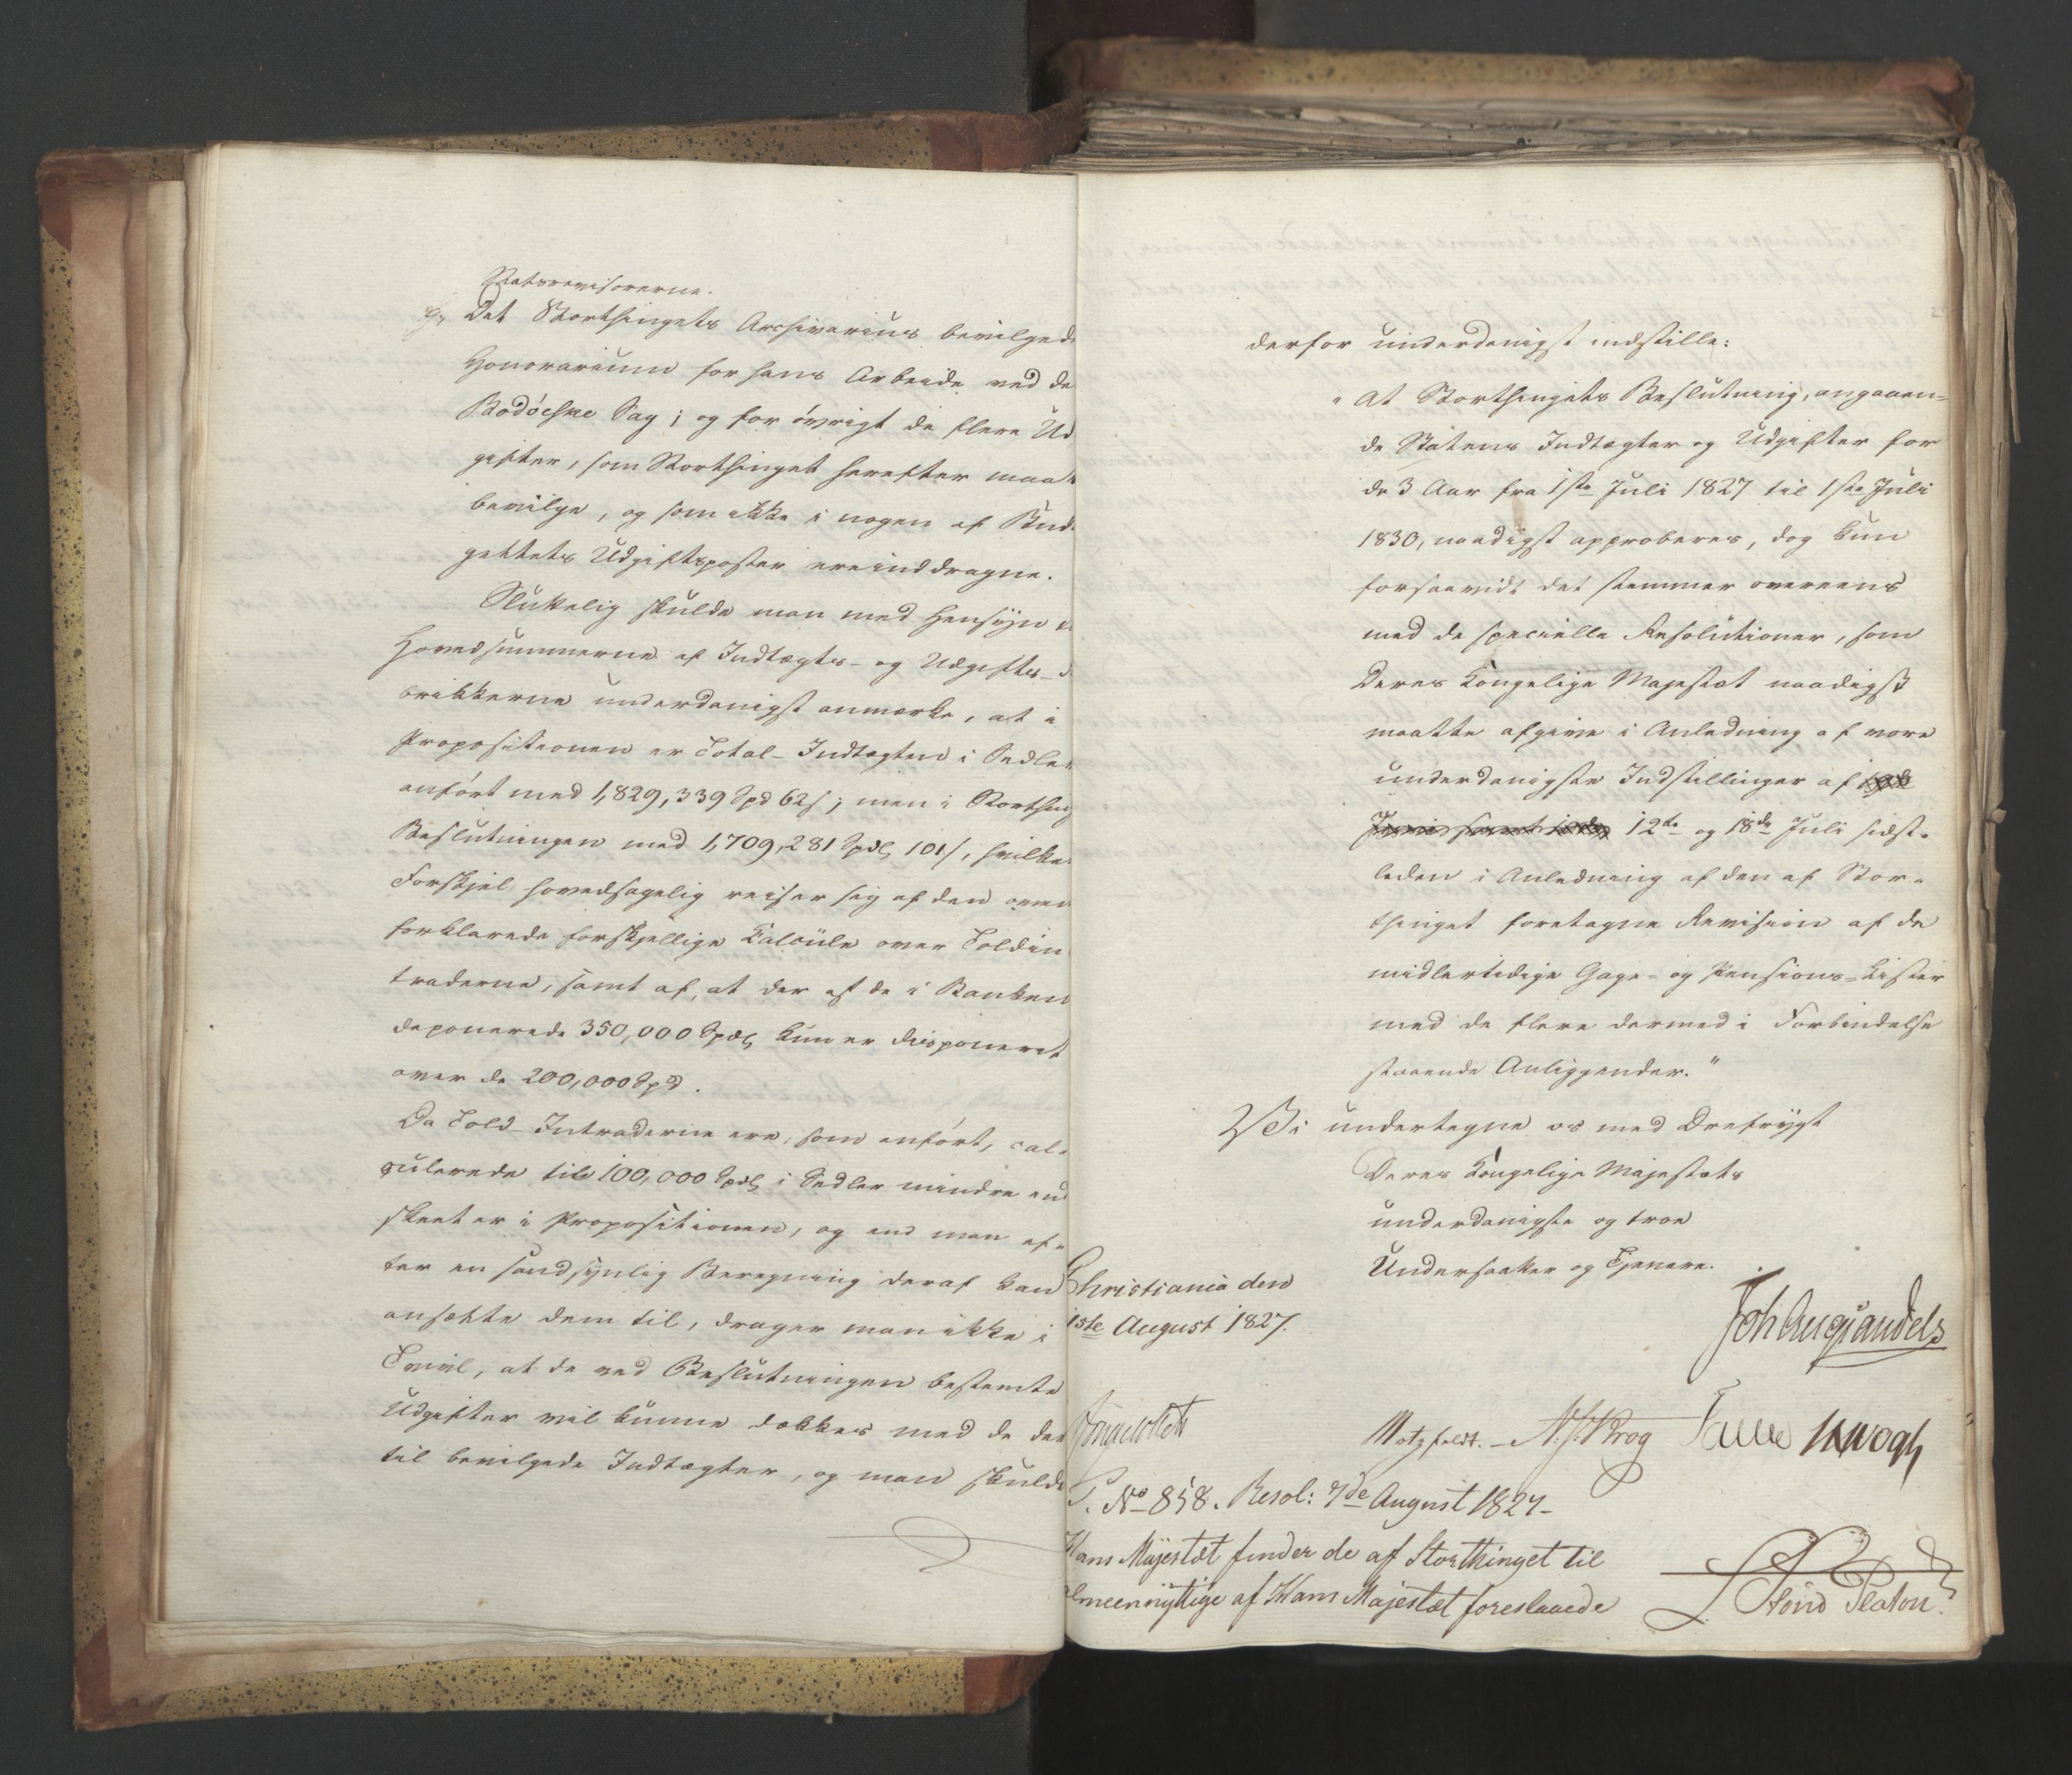 Statsrevisorerne.
g, Det Storthingets Archivarius bevilgede
Honorarium for hans Arbeide ved de
Bodöeske Sag; og for övrigt de flere Ud
gifter, som Storthinget herefter maat
bevilge, og som ikke i nogen af Bud-
gettets Udgiftsposter ere inddragne.
Sluttelig skulde man med Hensyn
Hovedsummerne af Indtægts- og Udgifts-
brikkerne underdanigst anmærke, at i
Propositionen er Total-Indtægten i Sedler
anfört med 1,829,339 Spd 62 s; men i Storthing
Beslutningen med 1,709,281 Spd 101 s, hvilken
Forskjel hovedsagelig reiser sig af den oven
forklarede forskjellige Calcule over Toldin
traderne, samt af, at der af de i Banken
deponerede 350,000 Spd kun er disponeret
over de 200,000 Spd.
Da Told-Intraderne ere, som anfört, cal-
culerede til 100,000 Spd i Sedler mindre end
skeet er i Propositionen, og end man ef-
ter en sandsynlig Beregning deraf kan
ansætte dem til, drager man ikke i
Tvivl, at de ved Beslutningen bestemte
Udgifter vil kunne dækkes med de der
til bevilgede Indtægter, og man skulde
derfor underdanigst indstille:
"At Storthingets Beslutning, angaaen-
de Statens Indtægter og Udgifter for
de 3 Aar fra 1ste Juli 1827 til 1ste Juli
1830, naadigst approberes, dog kun
forsaavidt det stemmer overeens
med de specielle Resolutioner, som
Deres Kongelige Majestæt naadigst
maatte afgive i Anledning af vore
underdanigste Indstillinger af
12te og 18de Juli sidst-
leden i Anledning af den af Stor-
thinget foretagne Revision af de
midlertidige Gage- og Pensions-Lister
med de flere dermed i Forbindelse
staaende Anliggender."
Vi undertegne os med Ærefrygt
Deres Kongelige Majestæts
underdanigste og troe
Undersaatter og Tjenere.
Christiania den
1ste August 1827.
Joh Aug Sandels
Motzfeldt. N. J. Krog Fasting
P. No 858. Resol: 7de August 1827-
Hans Majestæt finder de af Storthinget til
almeennyttige af Hans Majestæt foreslaaede